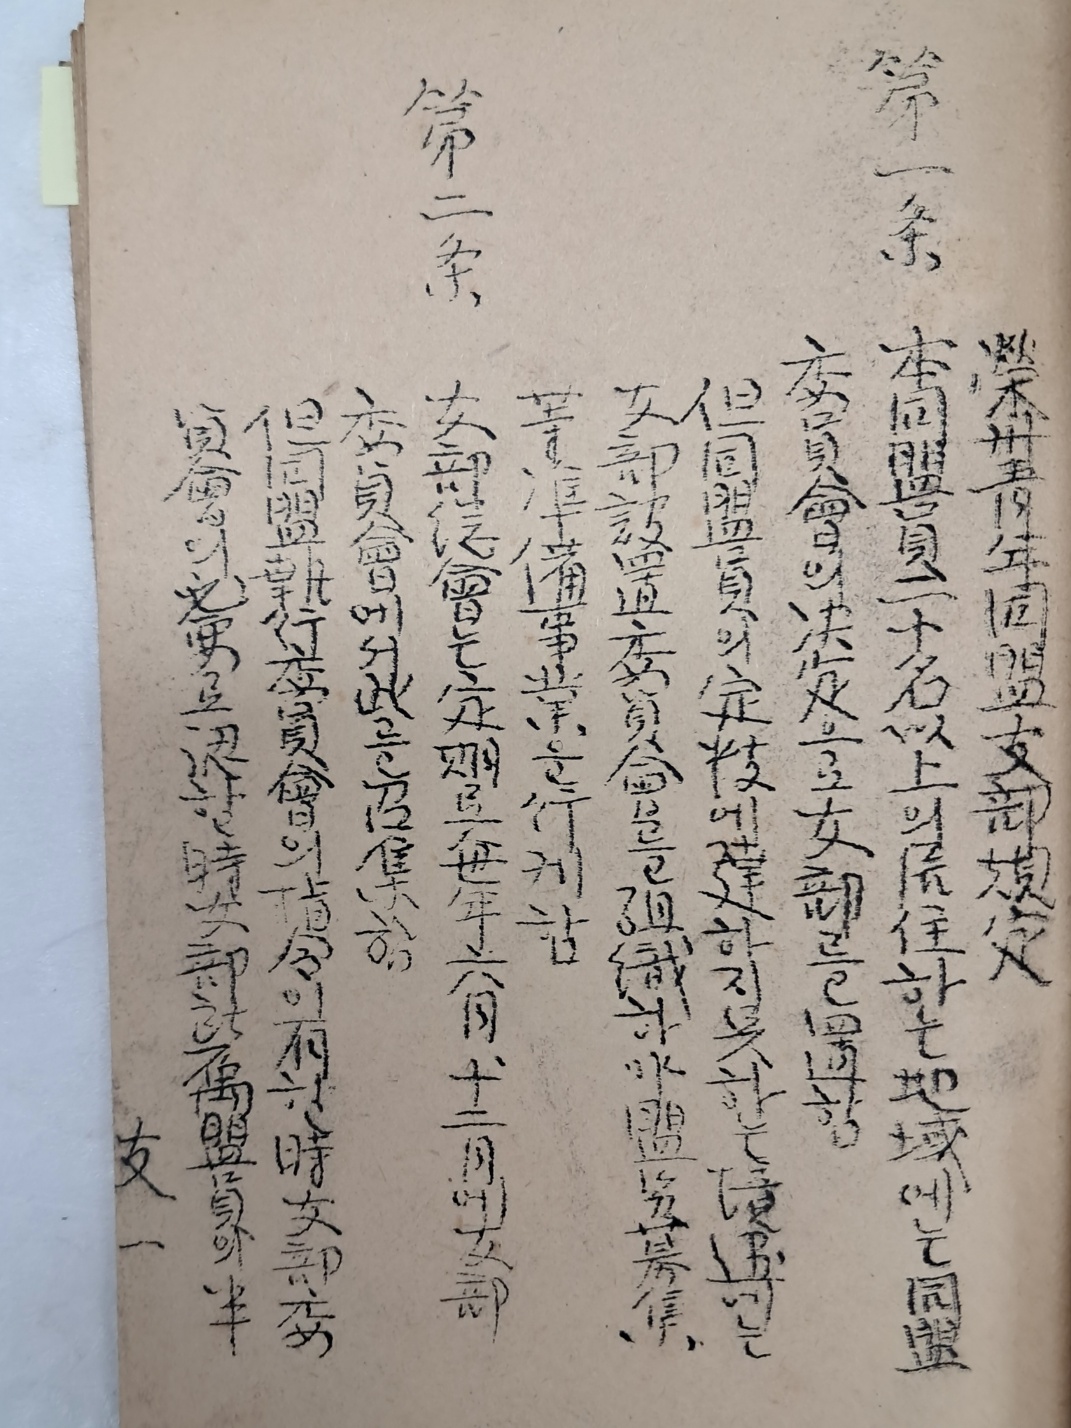 榮州靑年同盟支部規定
第一条 本同盟員二十名以上의居住하는地域에는同盟
委員會의決定으로支部를置함
但同盟員의定数에達하지못하는境遇에는
支部設置委員會를組織하야盟員募集
其準備事業을行키함
第二条 支部総會는定期로每年六月十二月에支部
委員會에서此를召集함
但同盟執行委員會의指令이有할時支部委
員會의必要로認할時支部所属盟員의半
支 一